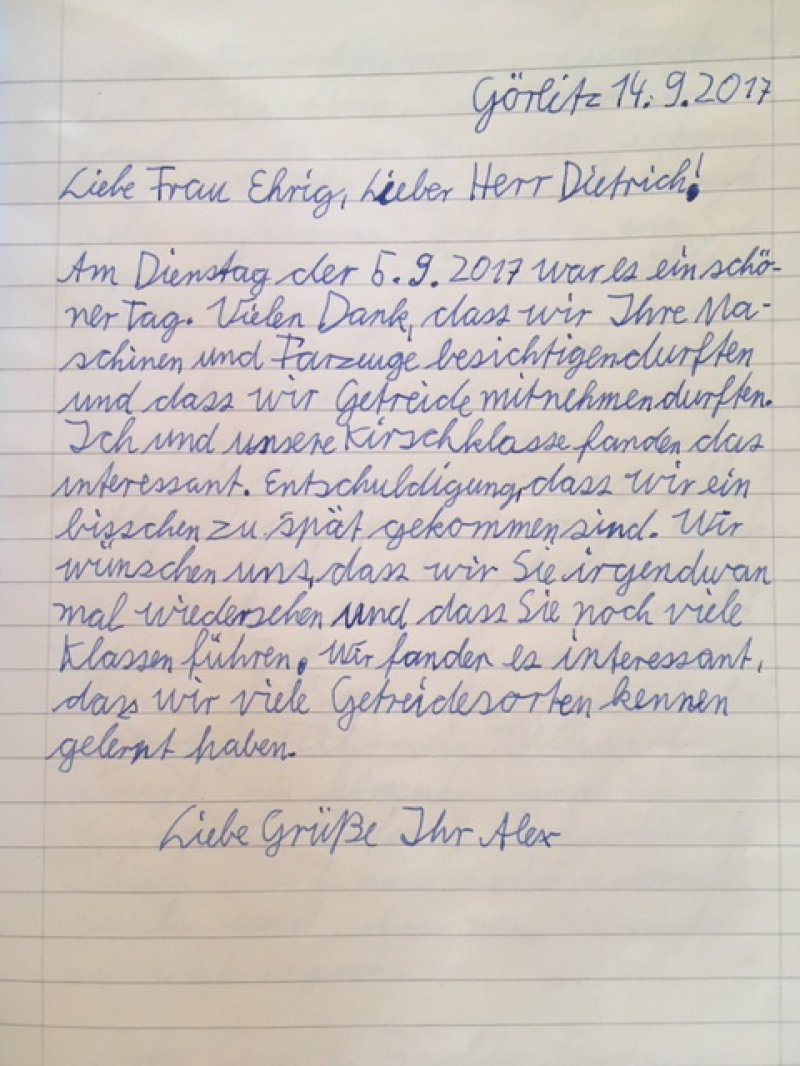 Görlitz 14.9.2017
Liebe Frau Ehrig, Lieber Herr Dietrich!
Am Dienstag der 5.9.2017 war es ein schö-
ner Tag. Vielen Dank, dass wir Ihre Ma-
schinen und Farzeuge besichtigen durften
und dass wir Getreide mitnehmen durften.
Ich und unsere Kirschklasse fanden das
interessant. Entschuldigung, dass wir ein
bisschen zu spät gekommen sind. Wir
wünschen uns, dass wir Sie irgendwan
mal wiedersehen und dass Sie noch viele
Klassen führen. Wir fanden es interessant,
dass wir viele Getreidesorten kennen
gelernt haben.
Liebe Grüße Ihr Alex